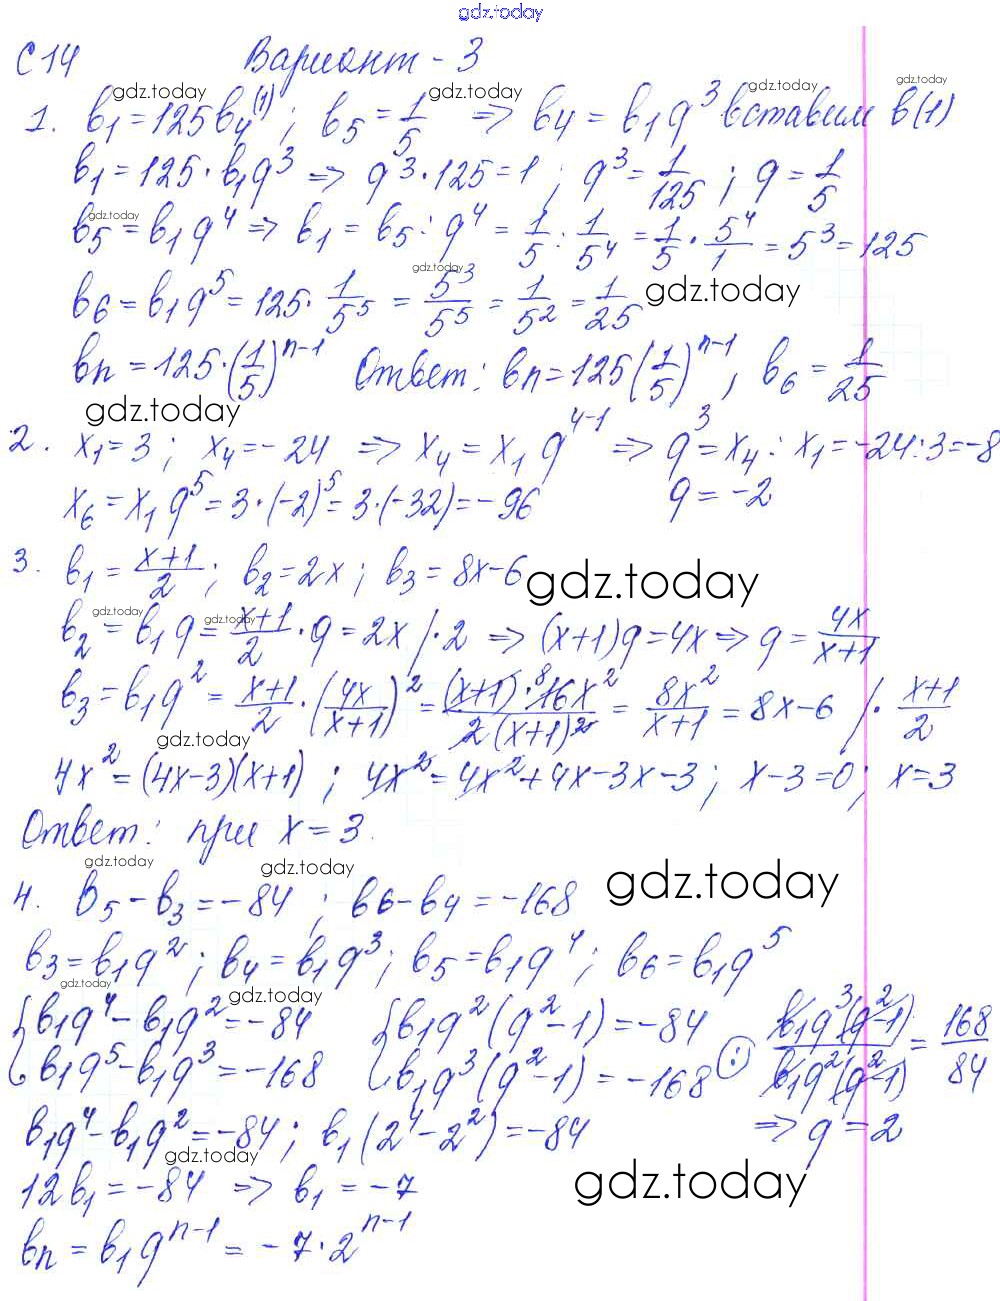 gdz.today
С14 Вариант - 3
gdz.today gdz.today gdz.today gdz.today
1. b₁ = 125b₄⁽¹⁾; b₅ = 1/5 => b₄ = b₁q³ вставим в(1)
b₁ = 125·b₁q³ => q³·125 = 1; q³ = 1/125; q = 1/5
gdz.today
b₅ = b₁q⁴ => b₁ = b₅ : q⁴ = 1/5 : 1/5⁴ = 1/5 · 5⁴/1 = 5³ = 125
gdz.today gdz.today
b₆ = b₁q⁵ = 125·1/5⁵ = 5³/5⁵ = 1/5² = 1/25
bn = 125·(1/5)ⁿ⁻¹ Ответ: bn = 125(1/5)ⁿ⁻¹, b₆ = 1/25
gdz.today
2. x₁ = 3; x₄ = -24 => x₄ = x₁q⁴⁻¹ => q³ = x₄ : x₁ = -24:3 = -8
x₆ = x₁q⁵ = 3·(-2)⁵ = 3·(-32) = -96 q = -2
3. b₁ = (x+1)/2; b₂ = 2x; b₃ = 8x-6
gdz.today
gdz.today gdz.today
b₂ = b₁q = (x+1)/2 · q = 2x /·2 => (x+1)q = 4x => q = 4x/(x+1)
b₃ = b₁q² = (x+1)/2 · (4x/(x+1))² = (x+1)·⁸16x²/2(x+1)² = 8x²/(x+1) = 8x-6 /· (x+1)/2
gdz.today
4x² = (4x-3)(x+1); 4x² = 4x²+4x-3x-3; x-3=0; x=3
Ответ: при x = 3.
gdz.today gdz.today gdz.today
4. b₅ - b₃ = -84; b₆ - b₄ = -168
b₃ = b₁q²; b₄ = b₁q³; b₅ = b₁q⁴; b₆ = b₁q⁵
gdz.today gdz.today
{b₁q⁴ - b₁q² = -84 {b₁q²(q²-1) = -84 b₁q³(q²-1)/b₁q²(q²-1) = 168/84
b₁q⁵ - b₁q³ = -168 b₁q³(q²-1) = -168 (:)
b₁q⁴ - b₁q² = -84; b₁(2⁴-2²) = -84 => q = 2
gdz.today gdz.today
12b₁ = -84 => b₁ = -7
bn = b₁qⁿ⁻¹ = -7·2ⁿ⁻¹